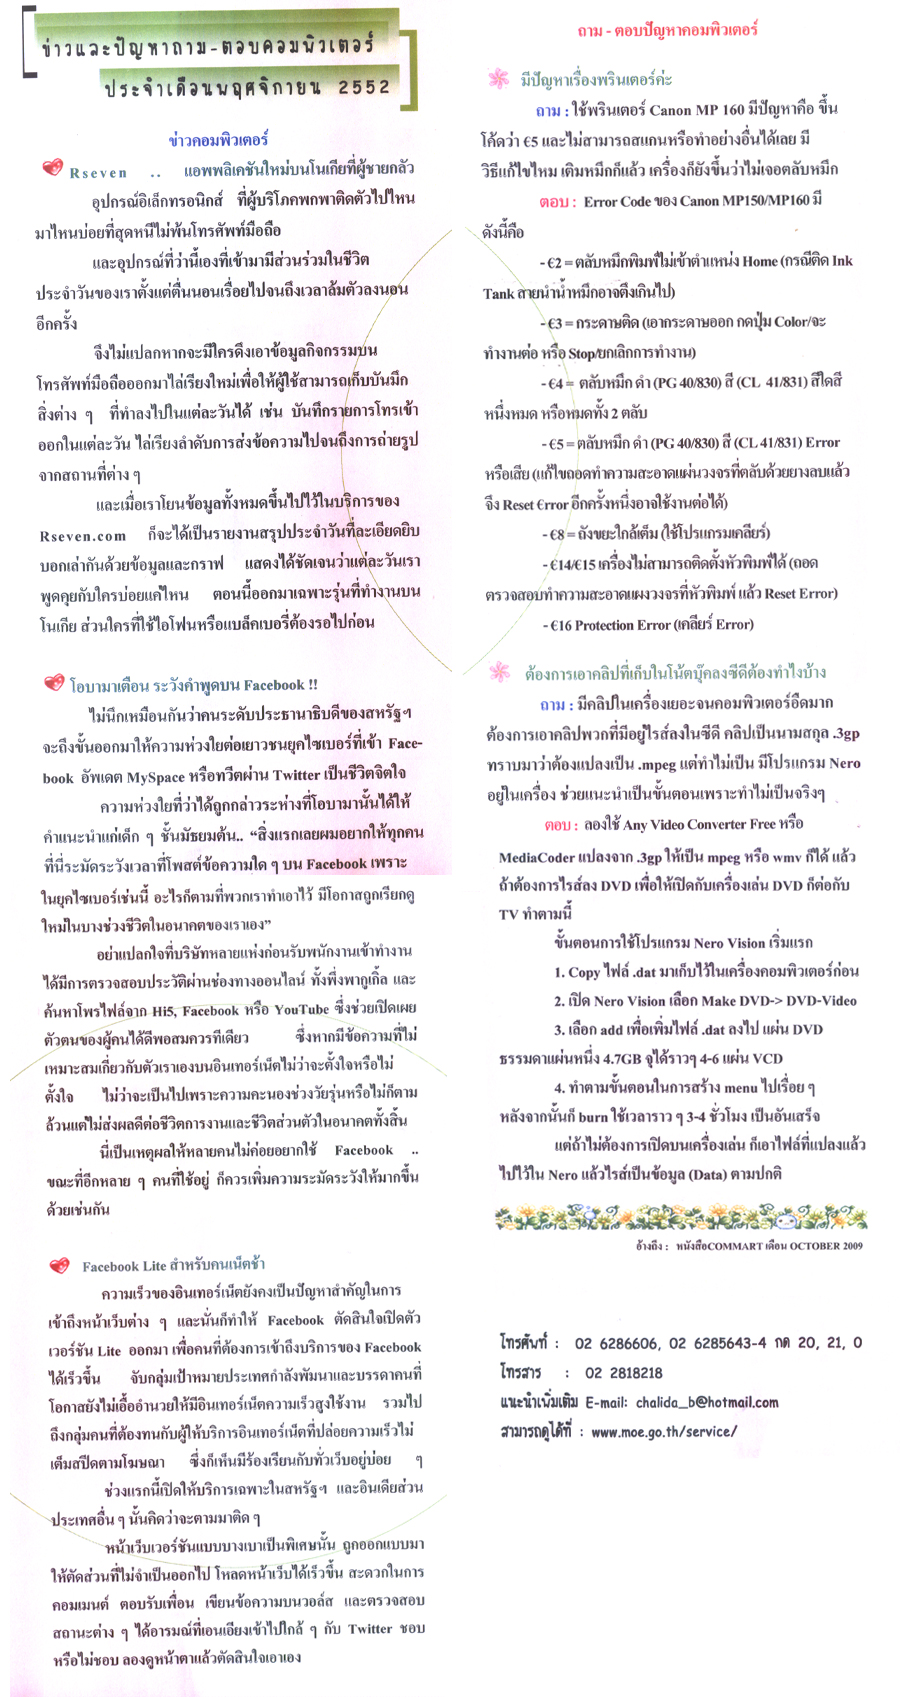 ข่าวและปัญหาถาม-ตอบคอมพิวเตอร์
ประจำเดือนพฤศจิกายน 2552
ข่าวคอมพิวเตอร์
Rseven .. แอพพลิเคชันใหม่บนโนเกียที่ผู้ชายกลัว
อุปกรณ์อิเล็กทรอนิกส์ ที่ผู้บริโภคพกพาติดตัวไปไหน
มาไหนบ่อยที่สุดหนีไม่พ้นโทรศัพท์มือถือ
และอุปกรณ์ที่ว่านี้เองที่เข้ามามีส่วนร่วมในชีวิต
ประจำวันของเราตั้งแต่ตื่นนอนเรื่อยไปจนถึงเวลาล้มตัวลงนอน
อีกครั้ง
จึงไม่แปลกหากจะมีใครดึงเอาข้อมูลกิจกรรมบน
โทรศัพท์มือถือออกมาไล่เรียงใหม่เพื่อให้ผู้ใช้สามารถเก็บบันมึก
สิ่งต่าง ๆ ที่ทำลงไปในแต่ละวันได้ เช่น บันทึกรายการโทรเข้า
ออกในแต่ละวัน ไล่เรียงลำดับการส่งข้อความไปจนถึงการถ่ายรูป
จากสถานที่ต่าง ๆ
และเมื่อเราโยนข้อมูลทั้งหมดขึ้นไปไว้ในบริการของ
Rseven.com ก็จะได้เป็นรายงานสรุปประจำวันที่ละเอียดยิบ
บอกเล่ากันด้วยข้อมูลและกราฟ แสดงได้ชัดเจนว่าแต่ละวันเรา
พูดคุยกับใครบ่อยแค่ไหน ตอนนี้ออกมาเฉพาะรุ่นที่ทำงานบน
โนเกีย ส่วนใครที่ใช้ไอโฟนหรือแบล็คเบอรี่ต้องรอไปก่อน
โอบามาเตือน ระวังคำพูดบน Facebook !!
ไม่นึกเหมือนกันว่าคนระดับประธานาธิบดีของสหรัฐฯ
จะถึงขั้นออกมาให้ความห่วงใยต่อเยาวชนยุคไซเบอร์ที่เข้า Face-
book อัพเดต MySpace หรือทวีตผ่าน Twitter เป็นชีวิตจิตใจ
ความห่วงใยที่ว่าได้ถูกกล่าวระห่างที่โอบามานั้นได้ให้
คำแนะนำแก่เด็ก ๆ ชั้นมัธยมต้น.. “สิ่งแรกเลยผมอยากให้ทุกคน
ที่นี่ระมัดระวังเวลาที่โพสต์ข้อความใด ๆ บน Facebook เพราะ
ในยุคไซเบอร์เช่นนี้ อะไรก็ตามที่พวกเราทำเอาไว้ มีโอกาสถูกเรียกดู
ใหม่ในบางช่วงชีวิตในอนาคตของเราเอง”
อย่าแปลกใจที่บริษัทหลายแห่งก่อนรับพนักงานเข้าทำงาน
ได้มีการตรวจสอบประวัติผ่านช่องทางออนไลน์ ทั้งพึ่งพากูเกิ้ล และ
ค้นหาโพรไฟล์จาก Hi5, Facebook หรือ YouTube ซึ่งช่วยเปิดเผย
ตัวตนของผู้คนได้ดีพอสมควรทีเดียว ซึ่งหากมีข้อความที่ไม่
เหมาะสมเกี่ยวกับตัวเราเองบนอินเทอร์เน็ตไม่ว่าจะตั้งใจหรือไม่
ตั้งใจ ไม่ว่าจะเป็นไปเพราะความคะนองช่วงวัยรุ่นหรือไม่ก็ตาม
ล้วนแต่ไม่ส่งผลดีต่อชีวิตการงานและชีวิตส่วนตัวในอนาคตทั้งสิ้น
นี่เป็นเหตุผลให้หลายคนไม่ค่อยอยากใช้ Facebook ..
ขณะที่อีกหลาย ๆ คนที่ใช้อยู่ ก็ควรเพิ่มความระมัดระวังให้มากขึ้น
ด้วยเช่นกัน
Facebook Lite สำหรับคนเน็ตช้า
ความเร็วของอินเทอร์เน็ตยังคงเป็นปัญหาสำคัญในการ
เข้าถึงหน้าเว็บต่าง ๆ และนั่นก็ทำให้ Facebook ตัดสินใจเปิดตัว
เวอร์ชัน Lite ออกมา เพื่อคนที่ต้องการเข้าถึงบริการของ Facebook
ได้เร็วขึ้น จับกลุ่มเป้าหมายประเทศกำลังพัฒนาและบรรดาคนที่
โอกาสยังไม่เอื้ออำนวยให้มีอินเทอร์เน็ตความเร็วสูงใช้งาน รวมไป
ถึงกลุ่มคนที่ต้องทนกับผู้ให้บริการอินเทอร์เน็ตที่ปล่อยความเร็วไม่
เต็มสปีดตามโฆษณา ซึ่งก็เห็นมีร้องเรียนกับทั่วเว็บอยู่บ่อย ๆ
ช่วงแรกนี้เปิดให้บริการเฉพาะในสหรัฐฯ และอินเดียส่วน
ประเทศอื่น ๆ นั้นคิดว่าจะตามมาติด ๆ
หน้าเว็บเวอร์ชันแบบบางเบาเป็นพิเศษนั้น ถูกออกแบบมา
ให้ตัดส่วนที่ไม่จำเป็นออกไป โหลดหน้าเว็บได้เร็วขึ้น สะดวกในการ
คอมเมนต์ ตอบรับเพื่อน เขียนข้อความบนวอล์ส และตรวจสอบ
สถานะต่าง ๆ ได้อารมณ์ที่เอนเอียงเข้าไปใกล้ ๆ กับ Twitter ชอบ
หรือไม่ชอบ ลองดูหน้าตาแล้วตัดสินใจเอาเอง
ถาม - ตอบปัญหาคอมพิวเตอร์
มีปัญหาเรื่องพรินเตอร์ค่ะ
ถาม : ใช้พรินเตอร์ Canon MP 160 มีปัญหาคือ ขึ้น
โค้ดว่า €5 และไม่สามารถสแกนหรือทำอย่างอื่นได้เลย มี
วิธีแก้ไขไหม เติมหมึกก็แล้ว เครื่องก็ยังขึ้นว่าไม่เจอตลับหมึก
ตอบ : Error Code ของ Canon MP150/MP160 มี
ดังนี้คือ
- €2 = ตลับหมึกพิมพ์ไม่เข้าตำแหน่ง Home (กรณีติด Ink
Tank สายนำน้ำหมึกอาจตึงเกินไป)
- €3 = กระดาษติด (เอากระดาษออก กดปุ่ม Color/จะ
ทำงานต่อ หรือ Stop/ยกเลิกการทำงาน)
- €4 = ตลับหมึก ดำ (PG 40/830) สี (CL 41/831) สีใดสี
หนึ่งหมด หรือหมดทั้ง 2 ตลับ
- €5 = ตลับหมึก ดำ (PG 40/830) สี (CL 41/831) Error
หรือเสีย (แก้ไขถอดทำความสะอาดแผ่นวงจรที่ตลับด้วยยางลบแล้ว
จึง Reset €rror อีกครั้งหนึ่งอาจใช้งานต่อได้)
- €8 = ถังขยะใกล้เต็ม (ใช้โปรแกรมเคลียร์)
- €14/€15 เครื่องไม่สามารถติดตั้งหัวพิมพ์ได้ (ถอด
ตรวจสอบทำความสะอาดแผงวงจรที่หัวพิมพ์ แล้ว Reset Error)
- €16 Protection Error (เคลียร์ Error)
ต้องการเอาคลิปที่เก็บในโน้ตบุ๊คลงซีดีต้องทำไงบ้าง
ถาม : มีคลิปในเครื่องเยอะจนคอมพิวเตอร์อืดมาก
ต้องการเอาคลิปพวกที่มีอยู่ไรส์ลงในซีดี คลิปเป็นนามสกุล .3gp
ทราบมาว่าต้องแปลงเป็น .mpeg แต่ทำไม่เป็น มีโปรแกรม Nero
อยู่ในเครื่อง ช่วยแนะนำเป็นขั้นตอนเพราะทำไม่เป็นจริงๆ
ตอบ : ลองใช้ Any Video Converter Free หรือ
MediaCoder แปลงจาก .3gp ให้เป็น mpeg หรือ wmv ก็ได้ แล้ว
ถ้าต้องการไรส์ลง DVD เพื่อให้เปิดกับเครื่องเล่น DVD ที่ต่อกับ
TV ทำตามนี้
ขั้นตอนการใช้โปรแกรม Nero Vision เริ่มแรก
1. Copy ไฟล์ .dat มาเก็บไว้ในเครื่องคอมพิวเตอร์ก่อน
2. เปิด Nero Vision เลือก Make DVD-> DVD-Video
3. เลือก add เพื่อเพิ่มไฟล์ .dat ลงไป แผ่น DVD
ธรรมดาแผ่นหนึ่ง 4.7GB จุได้ราวๆ 4-6 แผ่น VCD
4. ทำตามขั้นตอนในการสร้าง menu ไปเรื่อย ๆ
หลังจากนั้นก็ burn ใช้เวลาราว ๆ 3-4 ชั่วโมง เป็นอันเสร็จ
แต่ถ้าไม่ต้องการเปิดบนเครื่องเล่น ก็เอาไฟล์ที่แปลงแล้ว
ไปไว้ใน Nero แล้วไรส์เป็นข้อมูล (Data) ตามปกติ
อ้างถึง : หนังสือCOMMART เดือน OCTOBER 2009
โทรศัพท์ : 02 6286606, 02 6285643-4 กด 20, 21, 0
โทรสาร : 02 2818218
แนะนำเพิ่มเติม E-mail: chalida_b@hotmail.com
สามารถดูได้ที่ : www.moe.go.th/service/